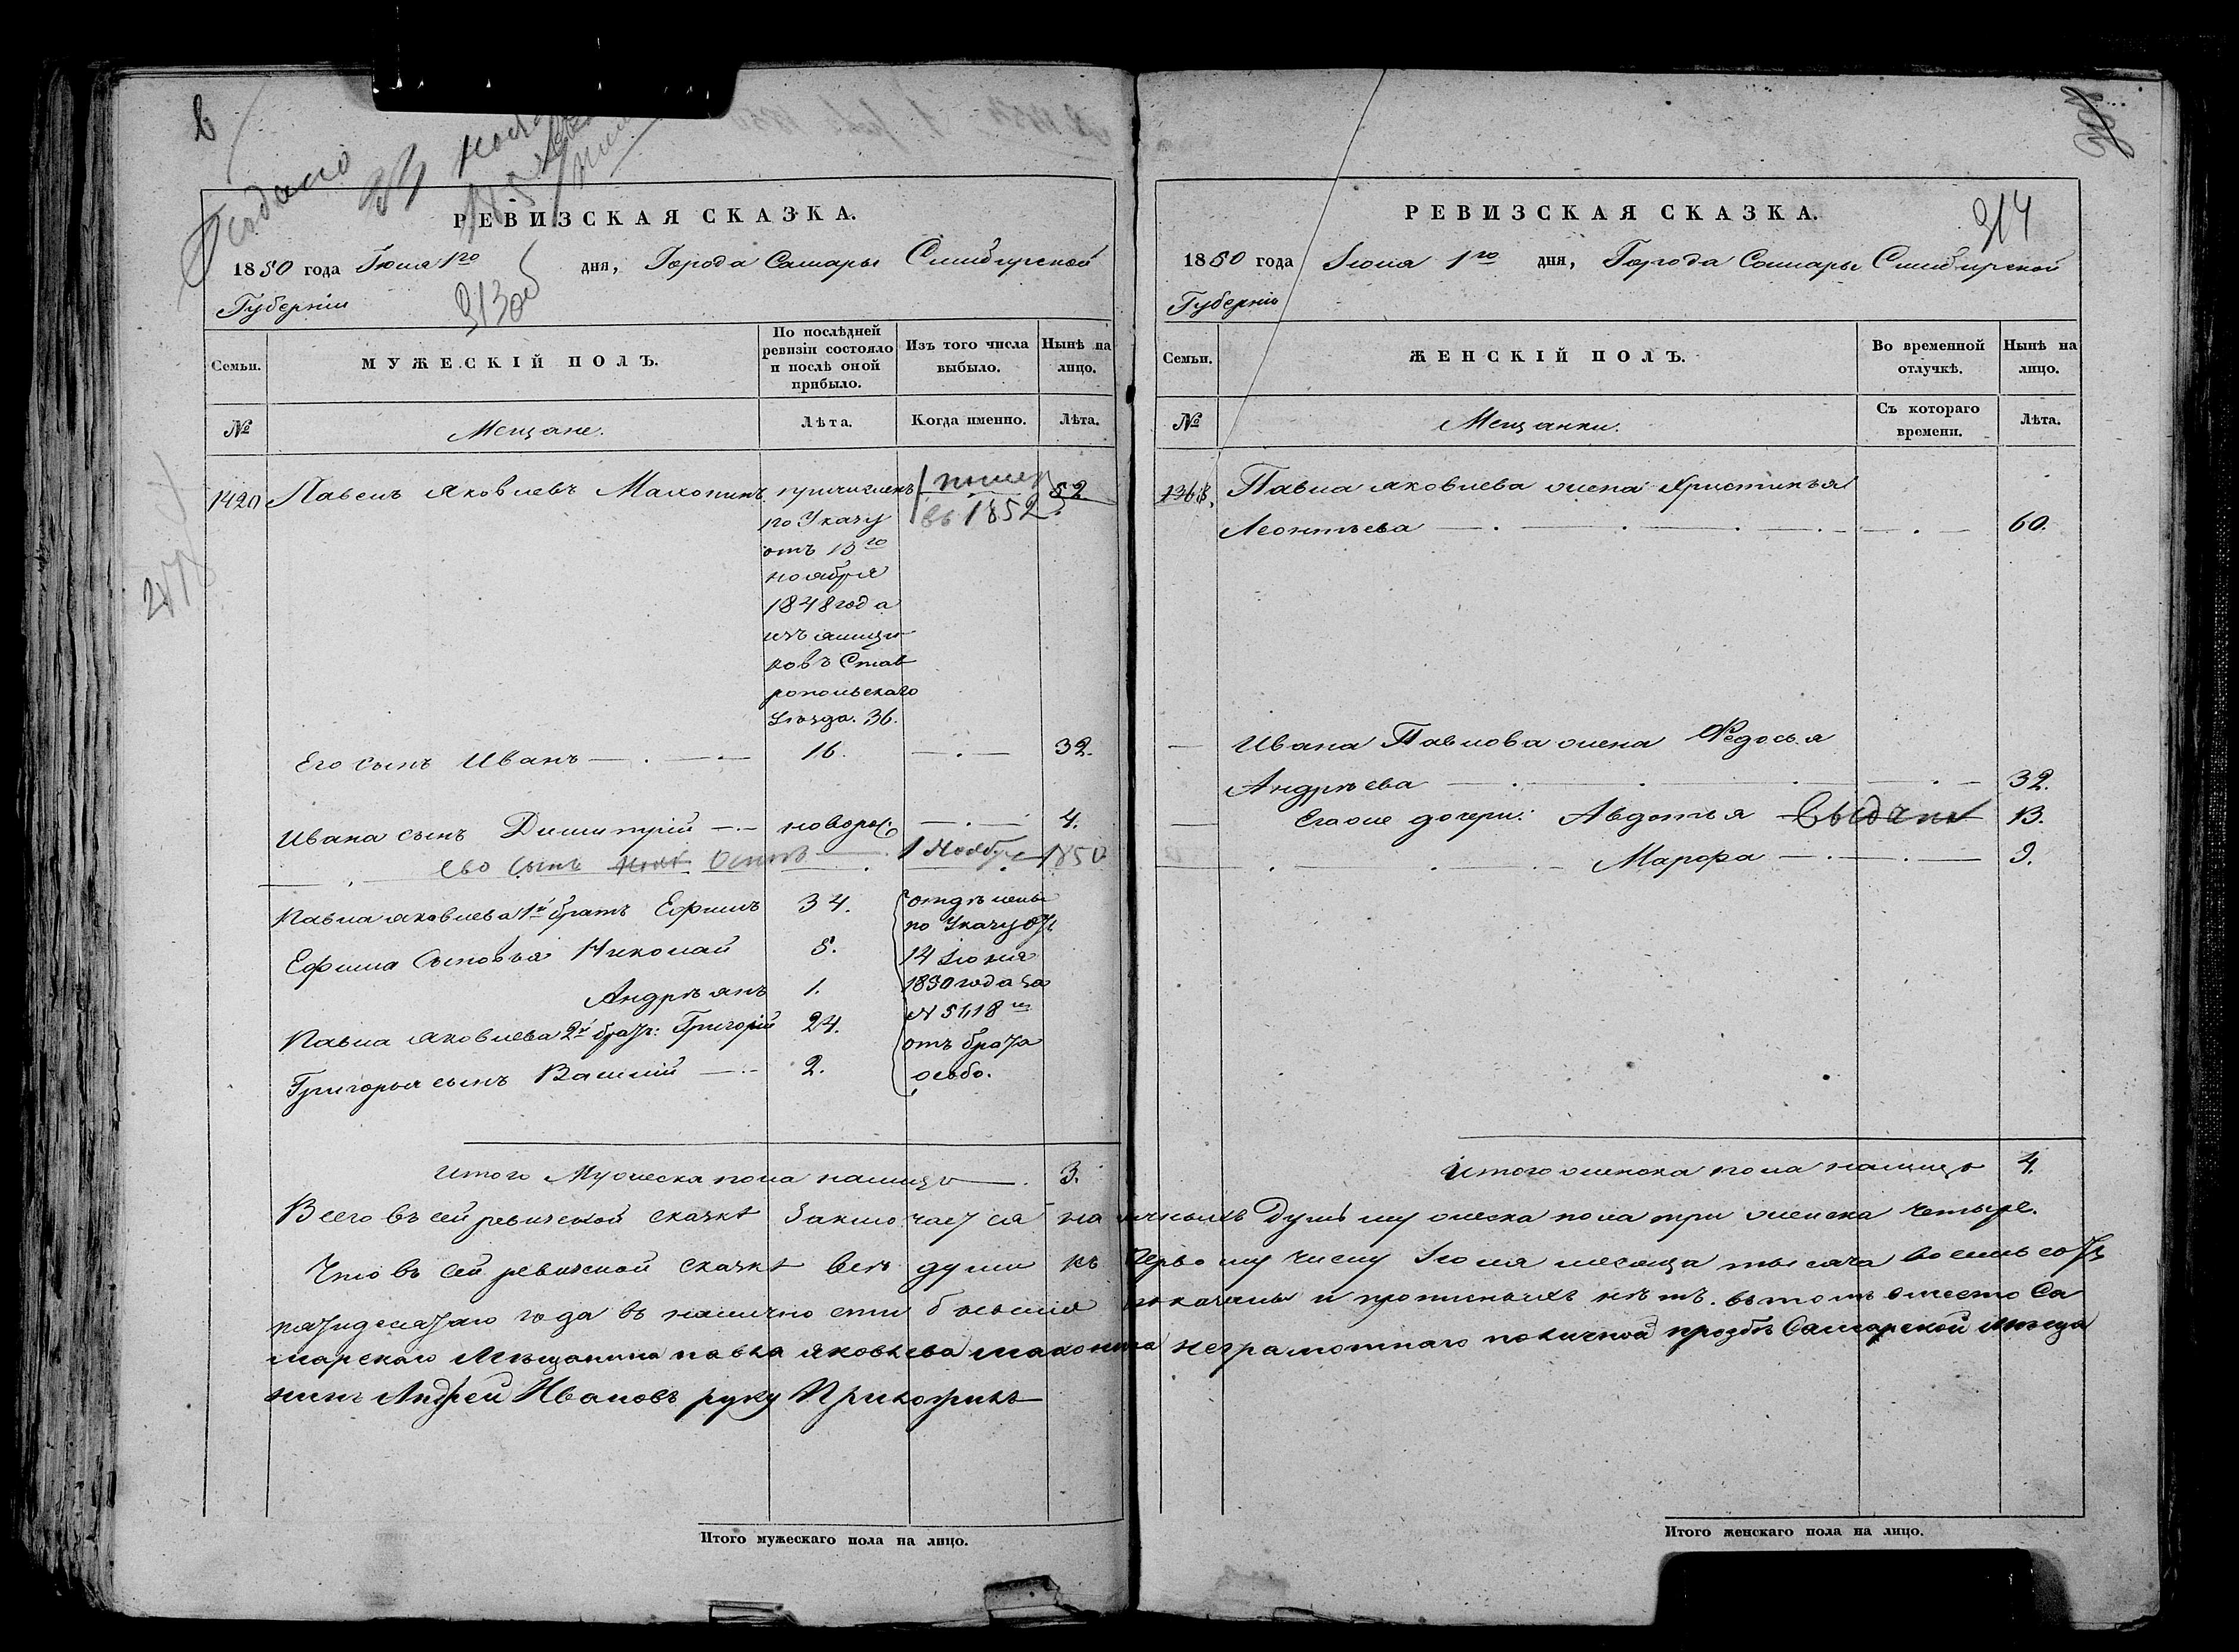 РЕВИЗСКАЯ СКАЗКА.
1850 года Іюня 1го дня, Города Самары Симбирской
Губерніи
313об
Семьи.
МУЖЕСКІЙ ПОЛЪ.
По послѣдней ревизіи состояло и послѣ оной прибыло.
Изъ того числа выбыло.
Нынѣ на лицо.
№
Мещане.
Лѣта.
Когда именно.
Лѣта.
1420 Павелъ Яковлевъ причисленъ помер 52.
по Указу въ 1852
отъ 13го
ноября
1848 года
изъ ямщи
ковъ Став
ропольскаго
уѣзда. 36.
Его сынъ Иванъ 16. 32.
Ивана сынъ Димитрій новорож 4.
его сынъ 1 Ноября 1850
Павла Яковлева 1й братъ Ефимъ 34. отделены
по Указу от
Ефима Сыновья Николай 8. 14 Іюня
Андреянъ 1. 1850 года за
N 5118м
Павла Яковлева 2й брат: Григорій 24. отъ брата
Григорья сынъ Василій 2. особо.
Итого Мужеска пола налицо 3.
Итого мужескаго пола на лицо.
РЕВИЗСКАЯ СКАЗКА.
314
1850 года Іюня 1го дня, Города Самары Симбирской
Губерніи
Семьи.
ЖЕНСКІЙ ПОЛЪ.
Во временной отлучкѣ.
Нынѣ на лицо.
№
Мещанки.
Съ котораго времени.
Лѣта.
Павла Яковлева жена Христинья
Леонтьева 60.
Ивана Павлова жена Федосья
Андрѣева 32.
Егоже дочери: Авдотья 13.
Марфа 9.
Итого женска пола налицо 4.
Всего въ сей ревизской сказке заключается наличныхъ Душъ мужеска пола три женска четыре.
Что въ сей ревизской сказке все души къ первому числу Іюня месяца тысяча восемьсот
пятидесятаго года въ наличности бывшия показаны и прописныхъ нетъ. въ томъ вместо Са
марскаго Мещанина Павла Яковлева неграмотнаго по личной прозбе Самарской Меща
нинъ Андрей Ивановъ руку Приложилъ
Итого женскаго пола на лицо.